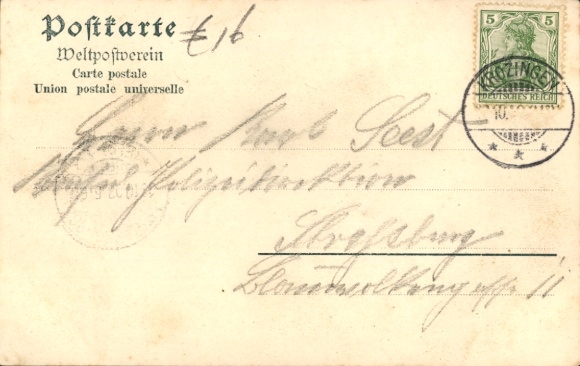 Postkarte
£ 16
Weltpostverein
Carte postale
Union postale universelle
5 5
DEUTSCHES REICH
KROZINGEN
10.
Herrn Karl Seest
Polizeidirektion
Straßburg
Blauwolkengasse 11